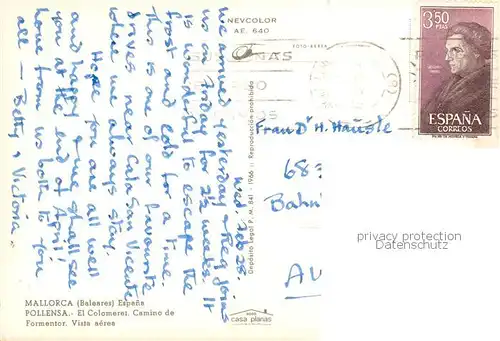 NEVCOLOR
AE. 640
FOTO-AEREA
3,50
PTAS
ESPAÑA
CORREOS
Wed. Feb. 25.
We arrived yesterday &
us on Friday for 2½ weeks. It
is wonderful to escape the
frost and cold for a time.
This is one of our favourite
drives near Cala San Vicente
where we always stay.
Hope you are all well
and happy & we shall see
you at the end of April!
Love from us both to you
all — Betty & Victoria.
Frau Dr H. Häusle
68
Bahn
Depósito Legal P. M. 841 - 1966
Reproducción prohibida
photovintagefrance
Datenschutz
MALLORCA (Baleares) España
POLLENSA.- El Colomerei. Camino de
Formentor. Vista aérea
casa planas